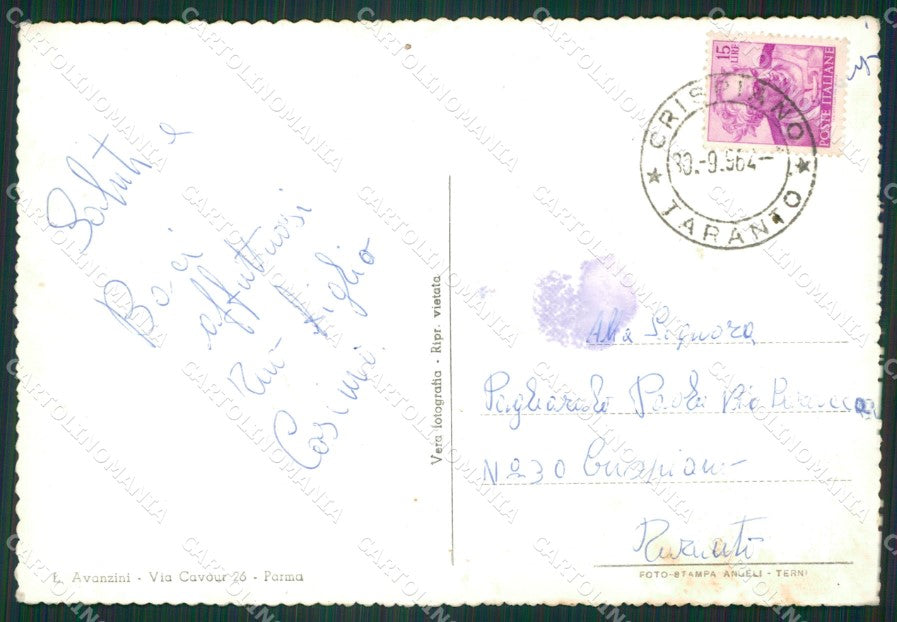 Saluti e
Baci
affettuosi
tuo figlio
Cosimo.
Vera fotografia - Ripr. vietata
L. Avanzini - Via Cavour 26 - Parma
15 LIRE
POSTE ITALIANE
CRISPIANO
30.-9.964-
TARANTO
Alla Signora
Paola Via
N° 30 Crispiano
Taranto
FOTO-STAMPA ANGELI - TERNI
CARTOLINOMANIA